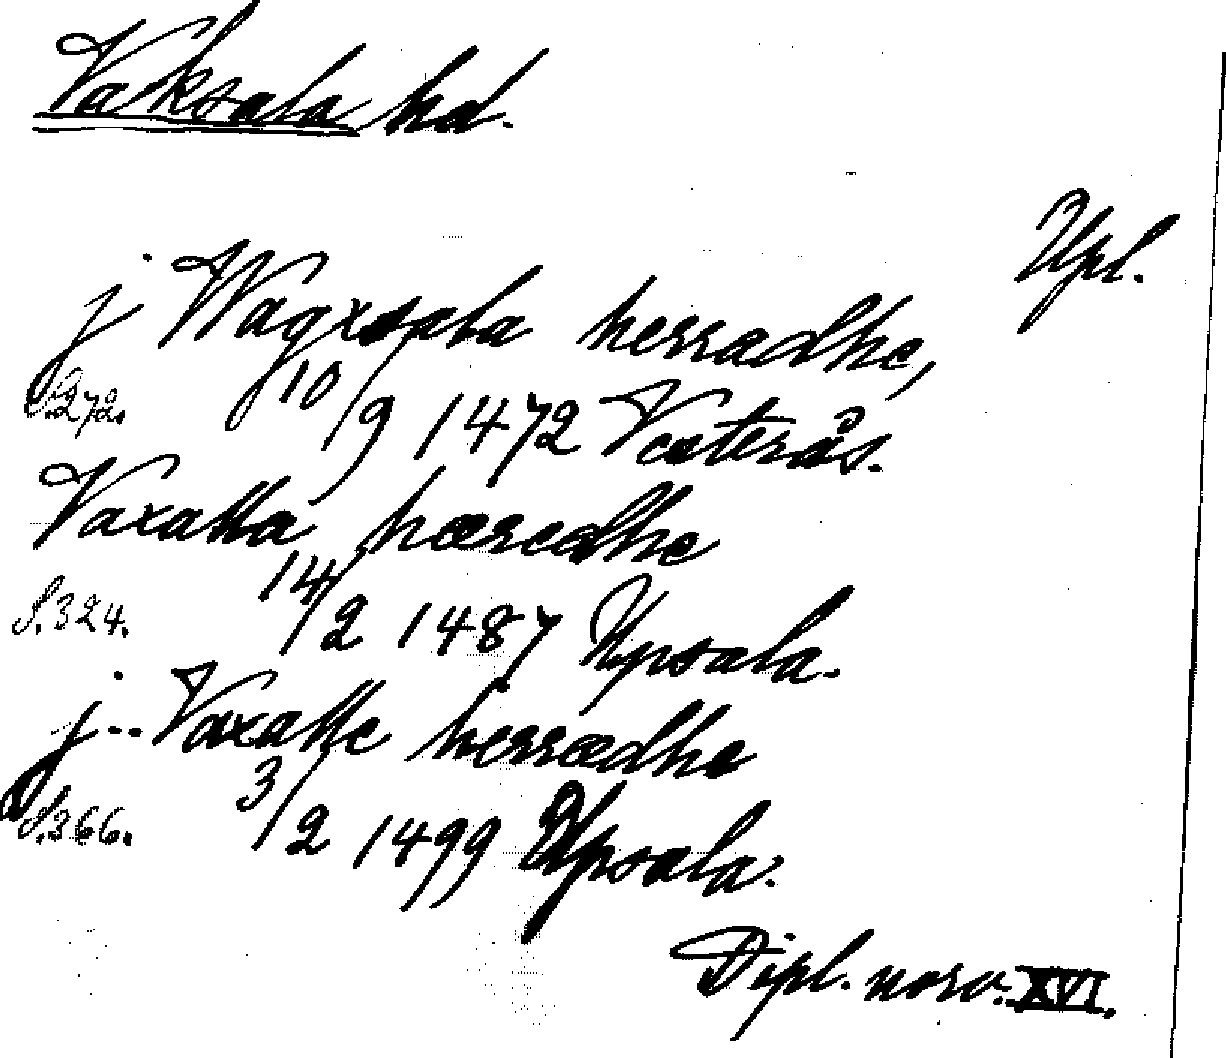 Vaksala hd.
Upl.
j Wagxsala herradhe,
S. 272. 10/9 1472 Västerås.
Vaxalla hæredhe
S. 324. 14/2 1487 Upsala.
j.. Vaxalle herrædhe
S. 366. 3/2 1499 Upsala.
Dipl. norv. XVI.